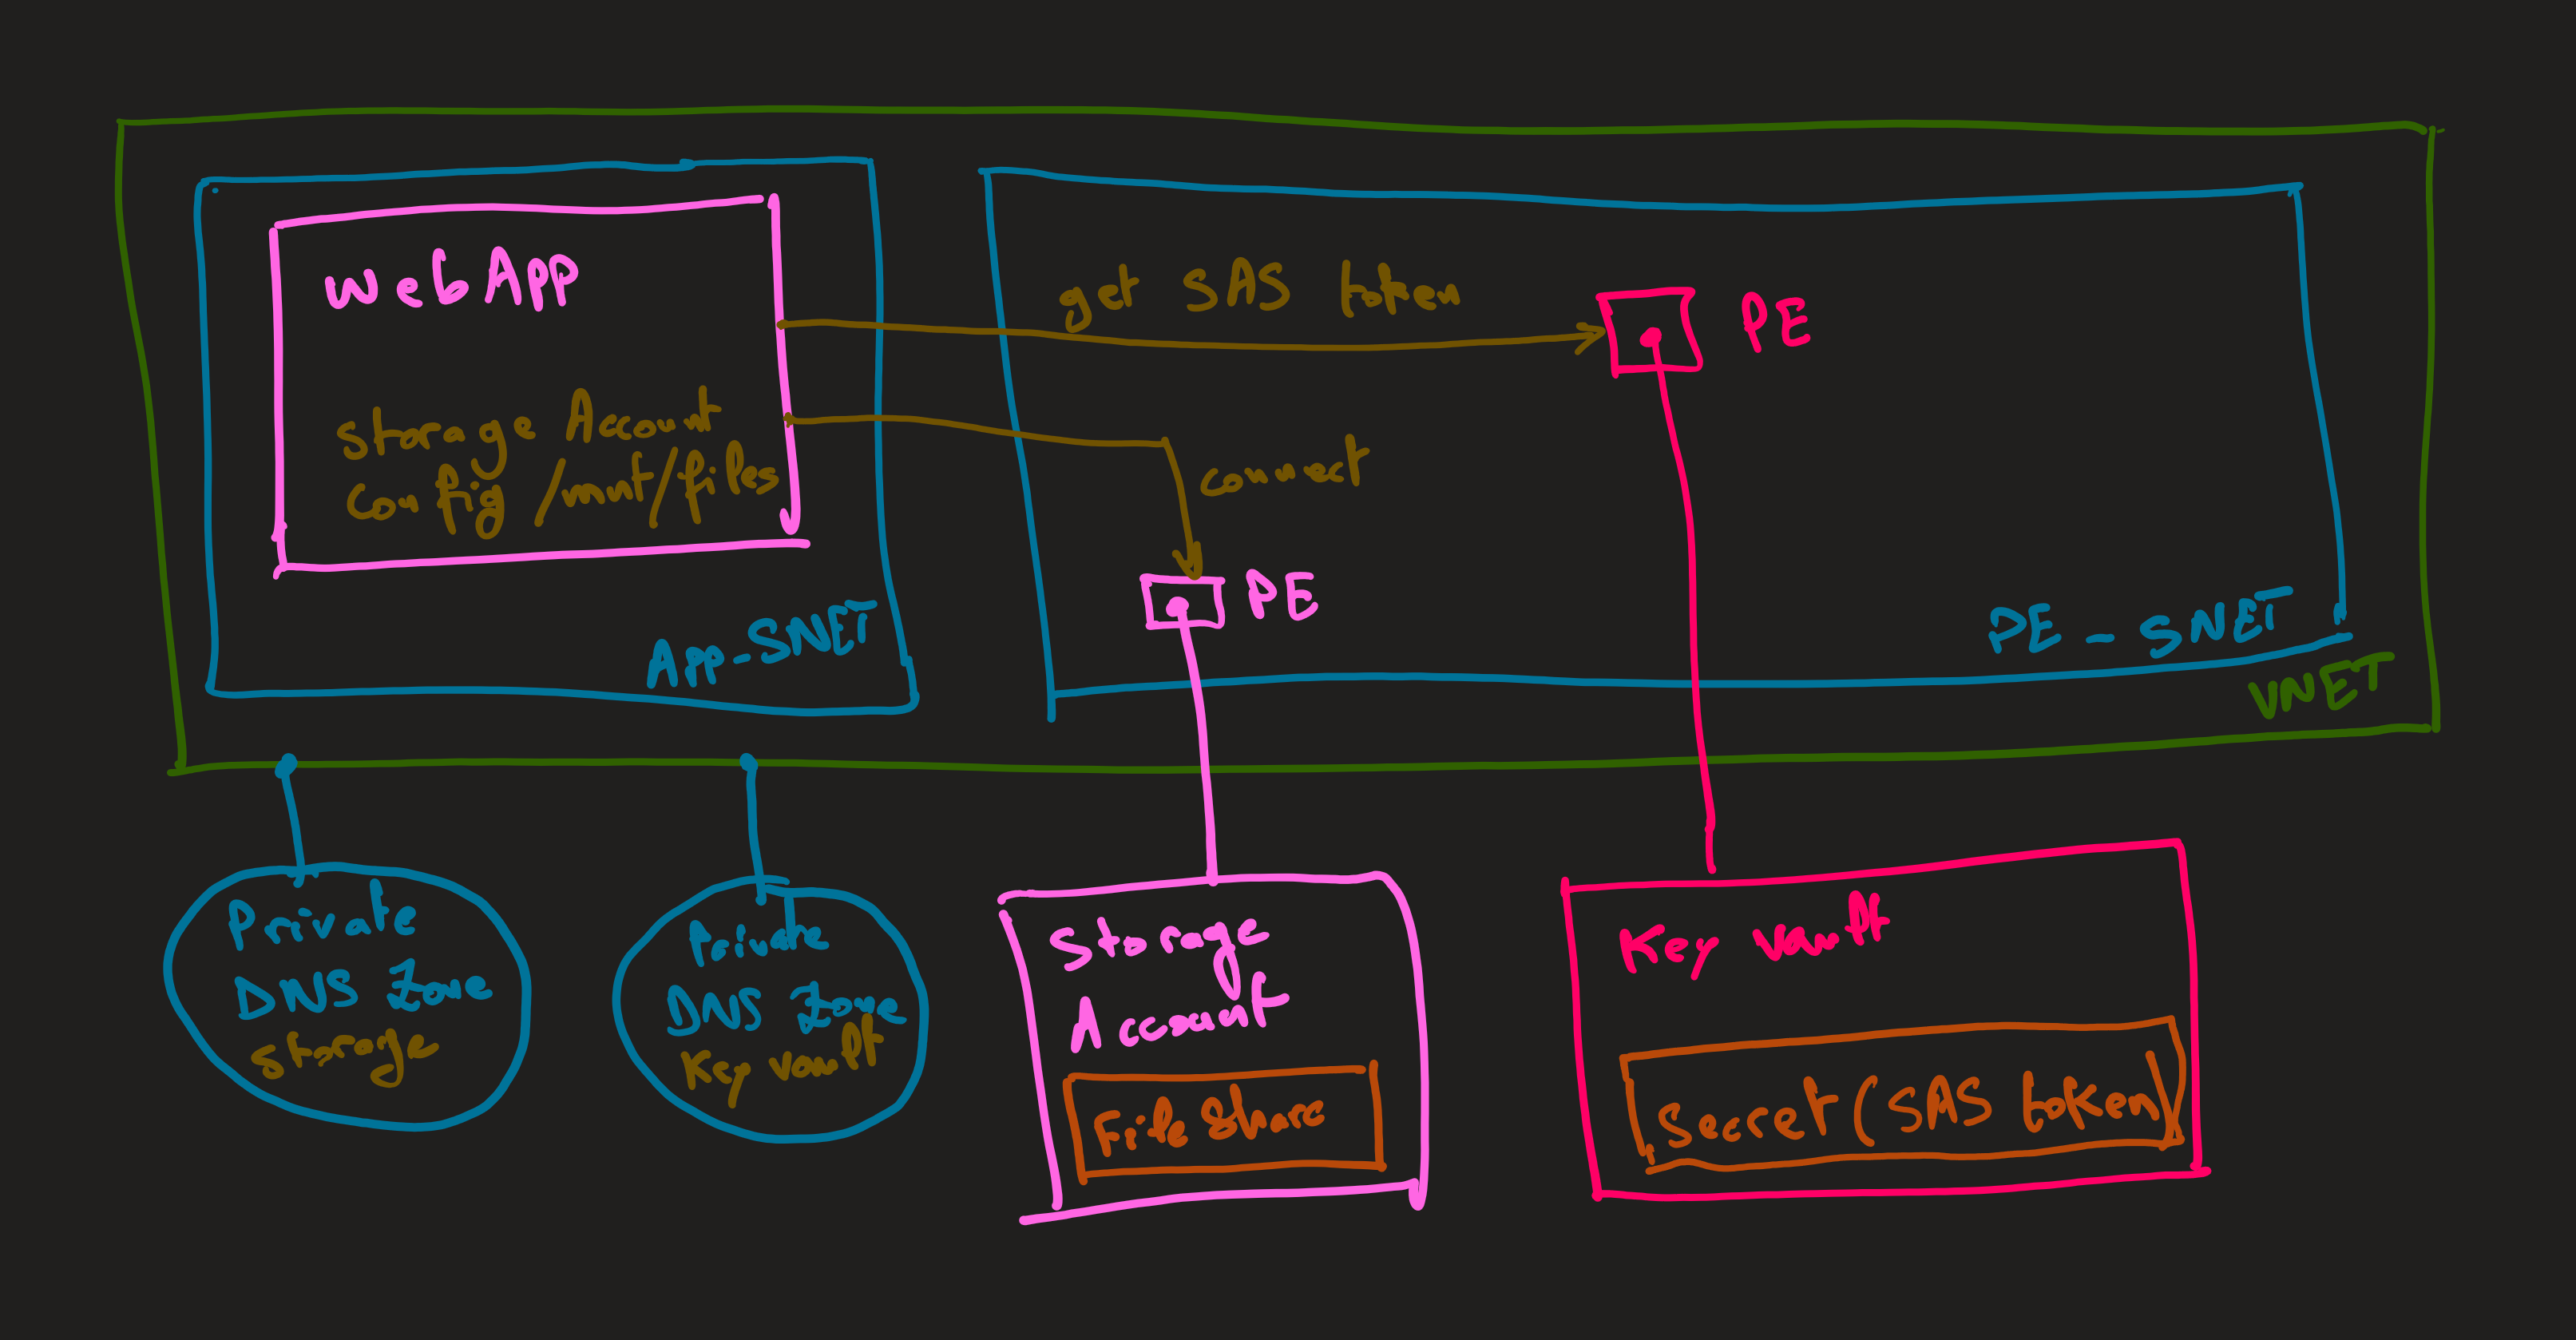 WebApp
Storage Account
Config /mnt/files
App-SNET
get SAS token
PE
connect
PE
PE-SNET
VNET
Private
DNS Zone
storage
Private
DNS Zone
Key vault
Storage
Account
File Share
Key vault
Secret (SAS token)